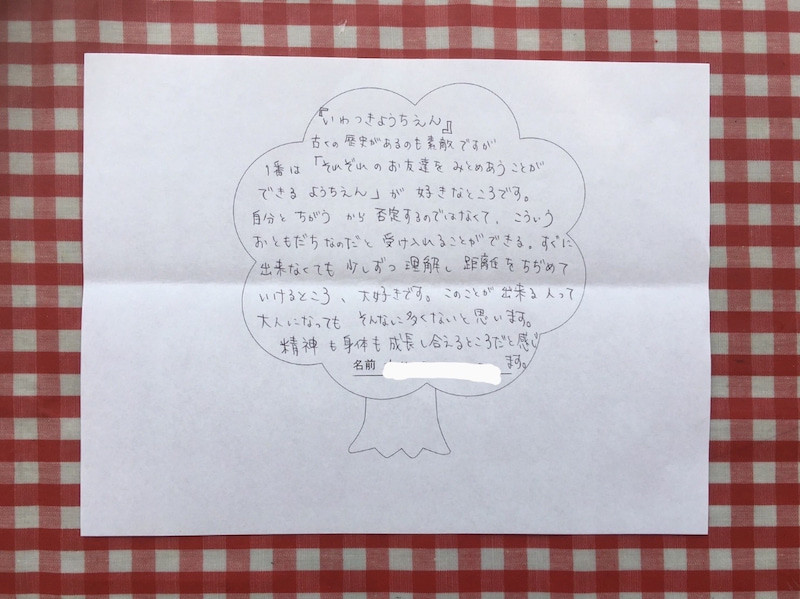 『いわつきようちえん』
古くの歴史があるのも素敵ですが
1番は「それぞれのお友達をみとめあうことが
できるようちえん」が好きなところです。
自分とちがうから否定するのではなくて、こういう
おともだちなのだと受け入れることができる。すぐに
出来なくても少しずつ理解し距離をちぢめて
いけるところ、大好きです。このことが出来る人って
大人になってもそんなに多くないと思います。
精神も身体も成長し合えるところだと感じ
ます。
名前